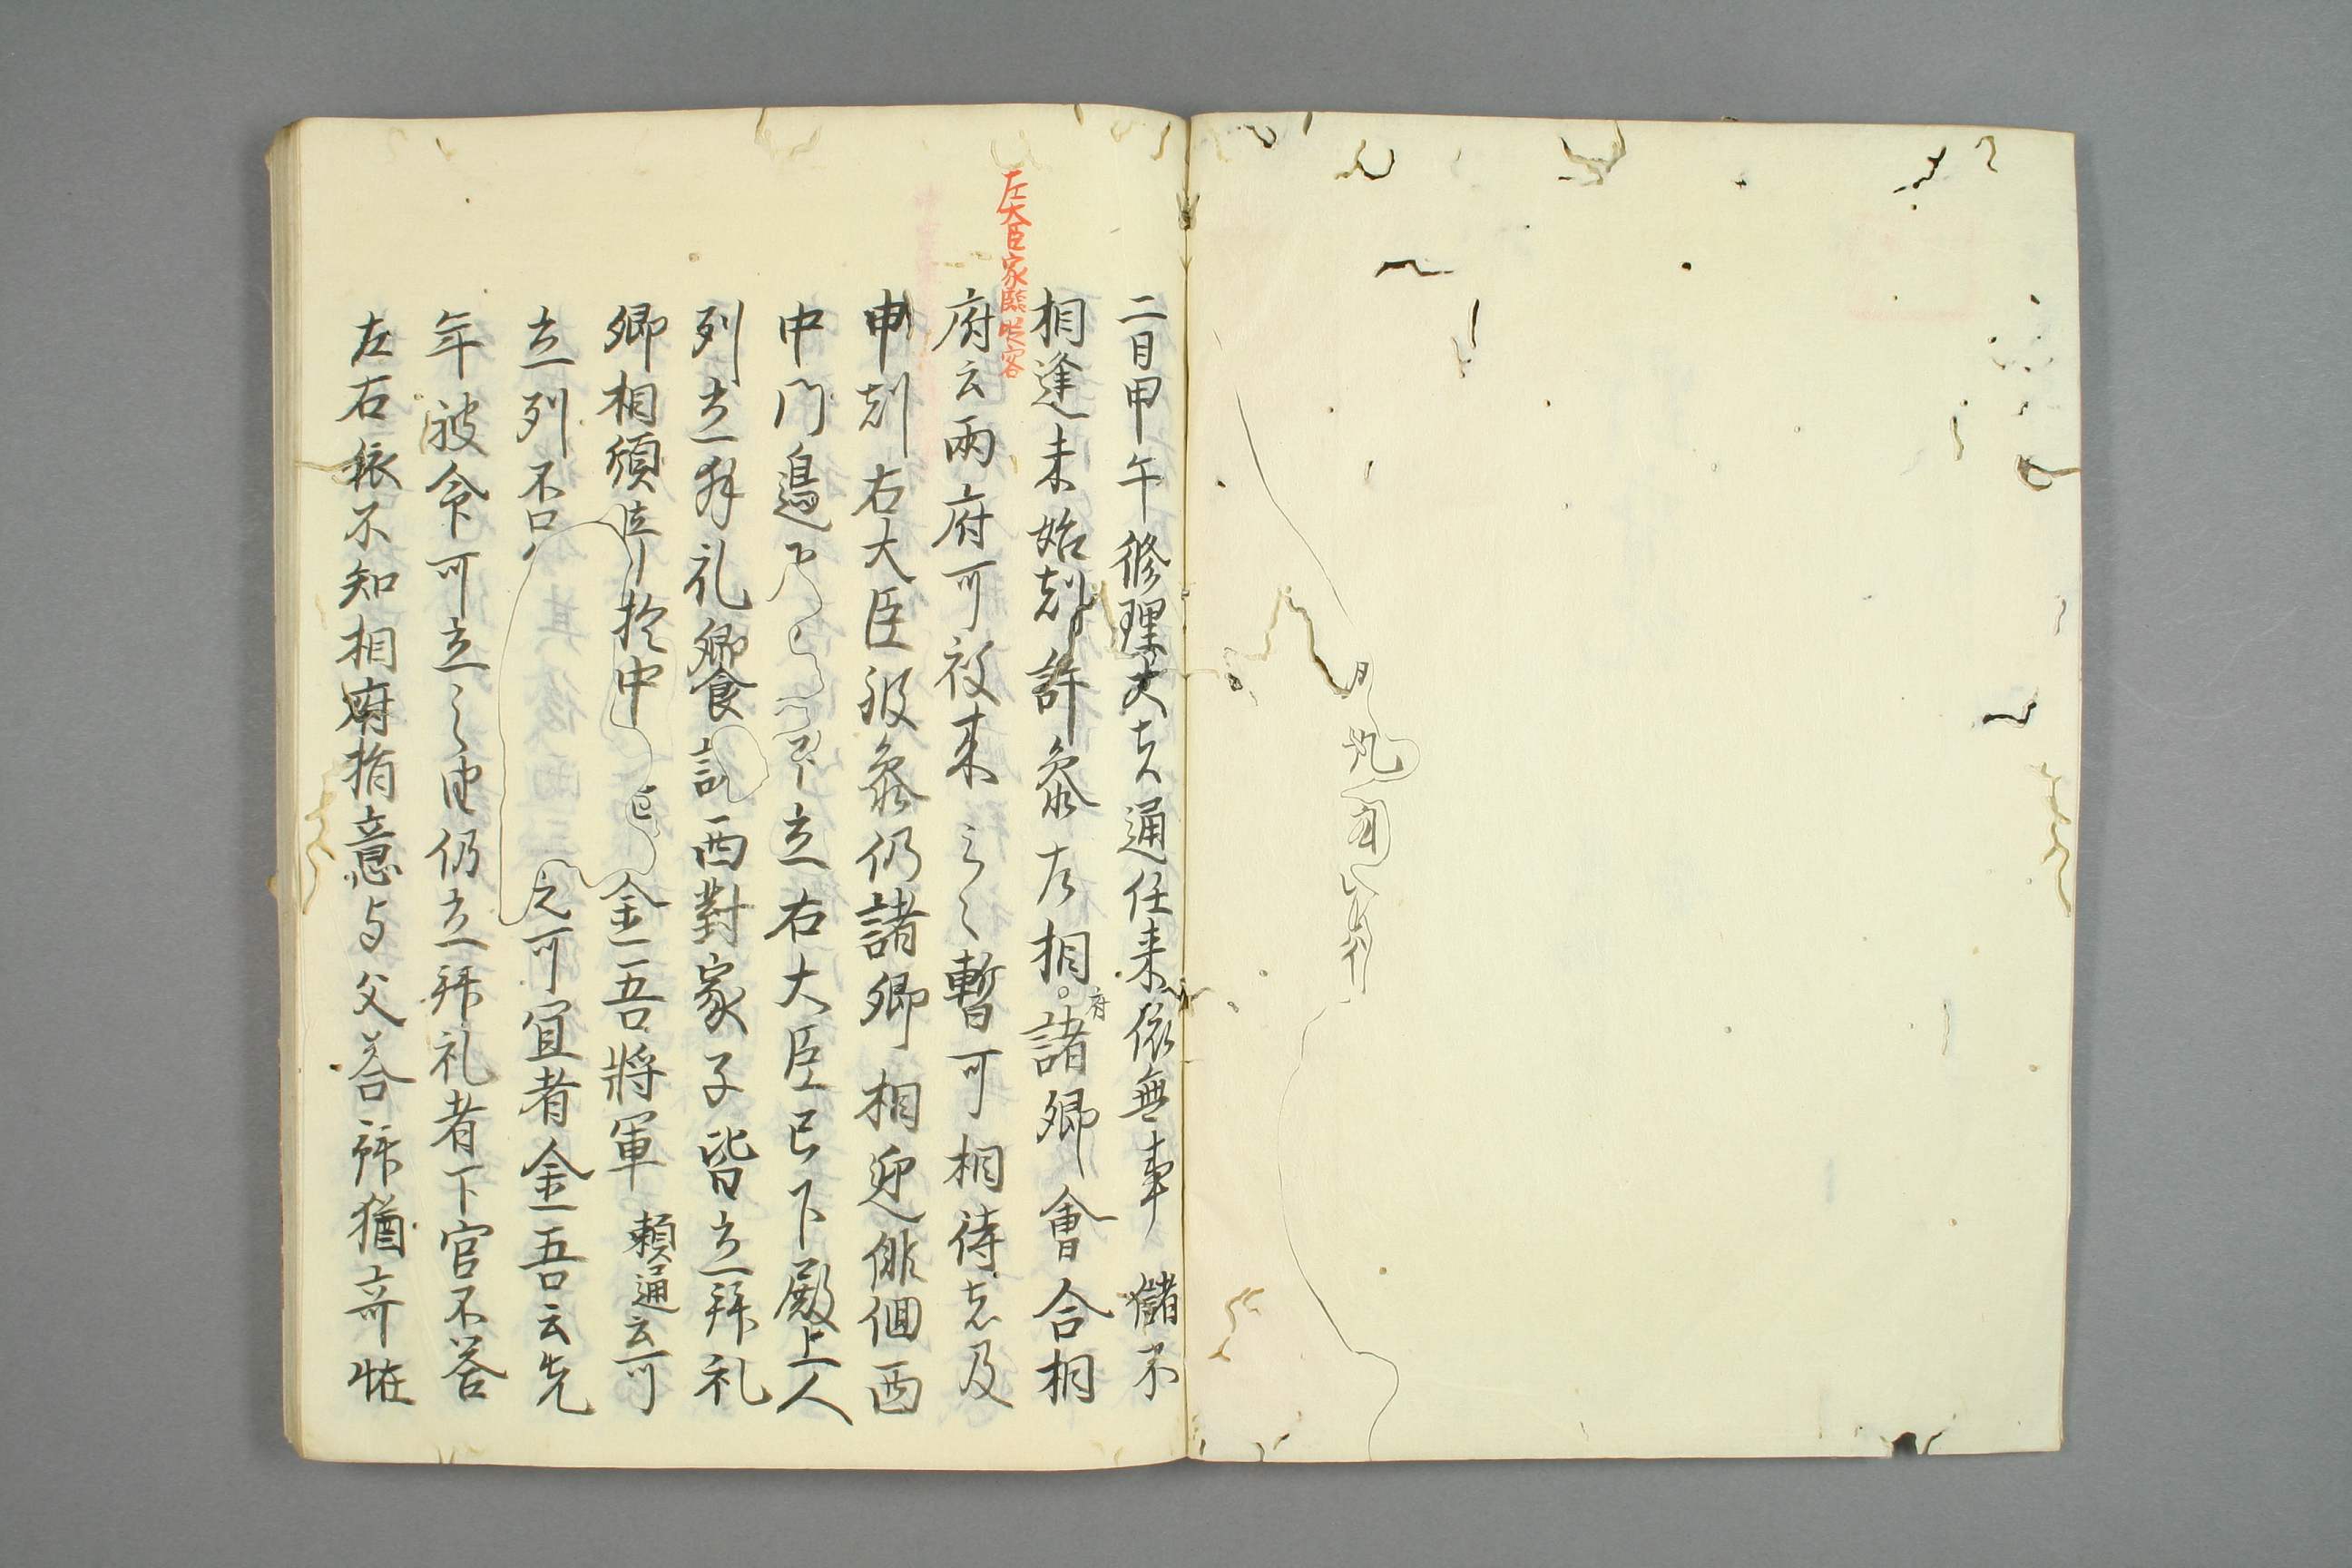 左大臣家臨時客
二日甲午修理大夫通任来依無事儲不
相逢未始剋許参左相府諸卿會合相
府云兩府可被来之々暫可相待者及
申剋右大臣被参仍諸卿相迎俳佪西
中門邉 立右大臣已下殿上人
列立拜礼 西對家子皆立拜礼
卿相 於中 金吾將軍頼通云可
立列不 之可宜者金吾云先
年被命可立之由仍立拜礼者下官不答
左右縁不知相府指意与父答拜猶奇恠